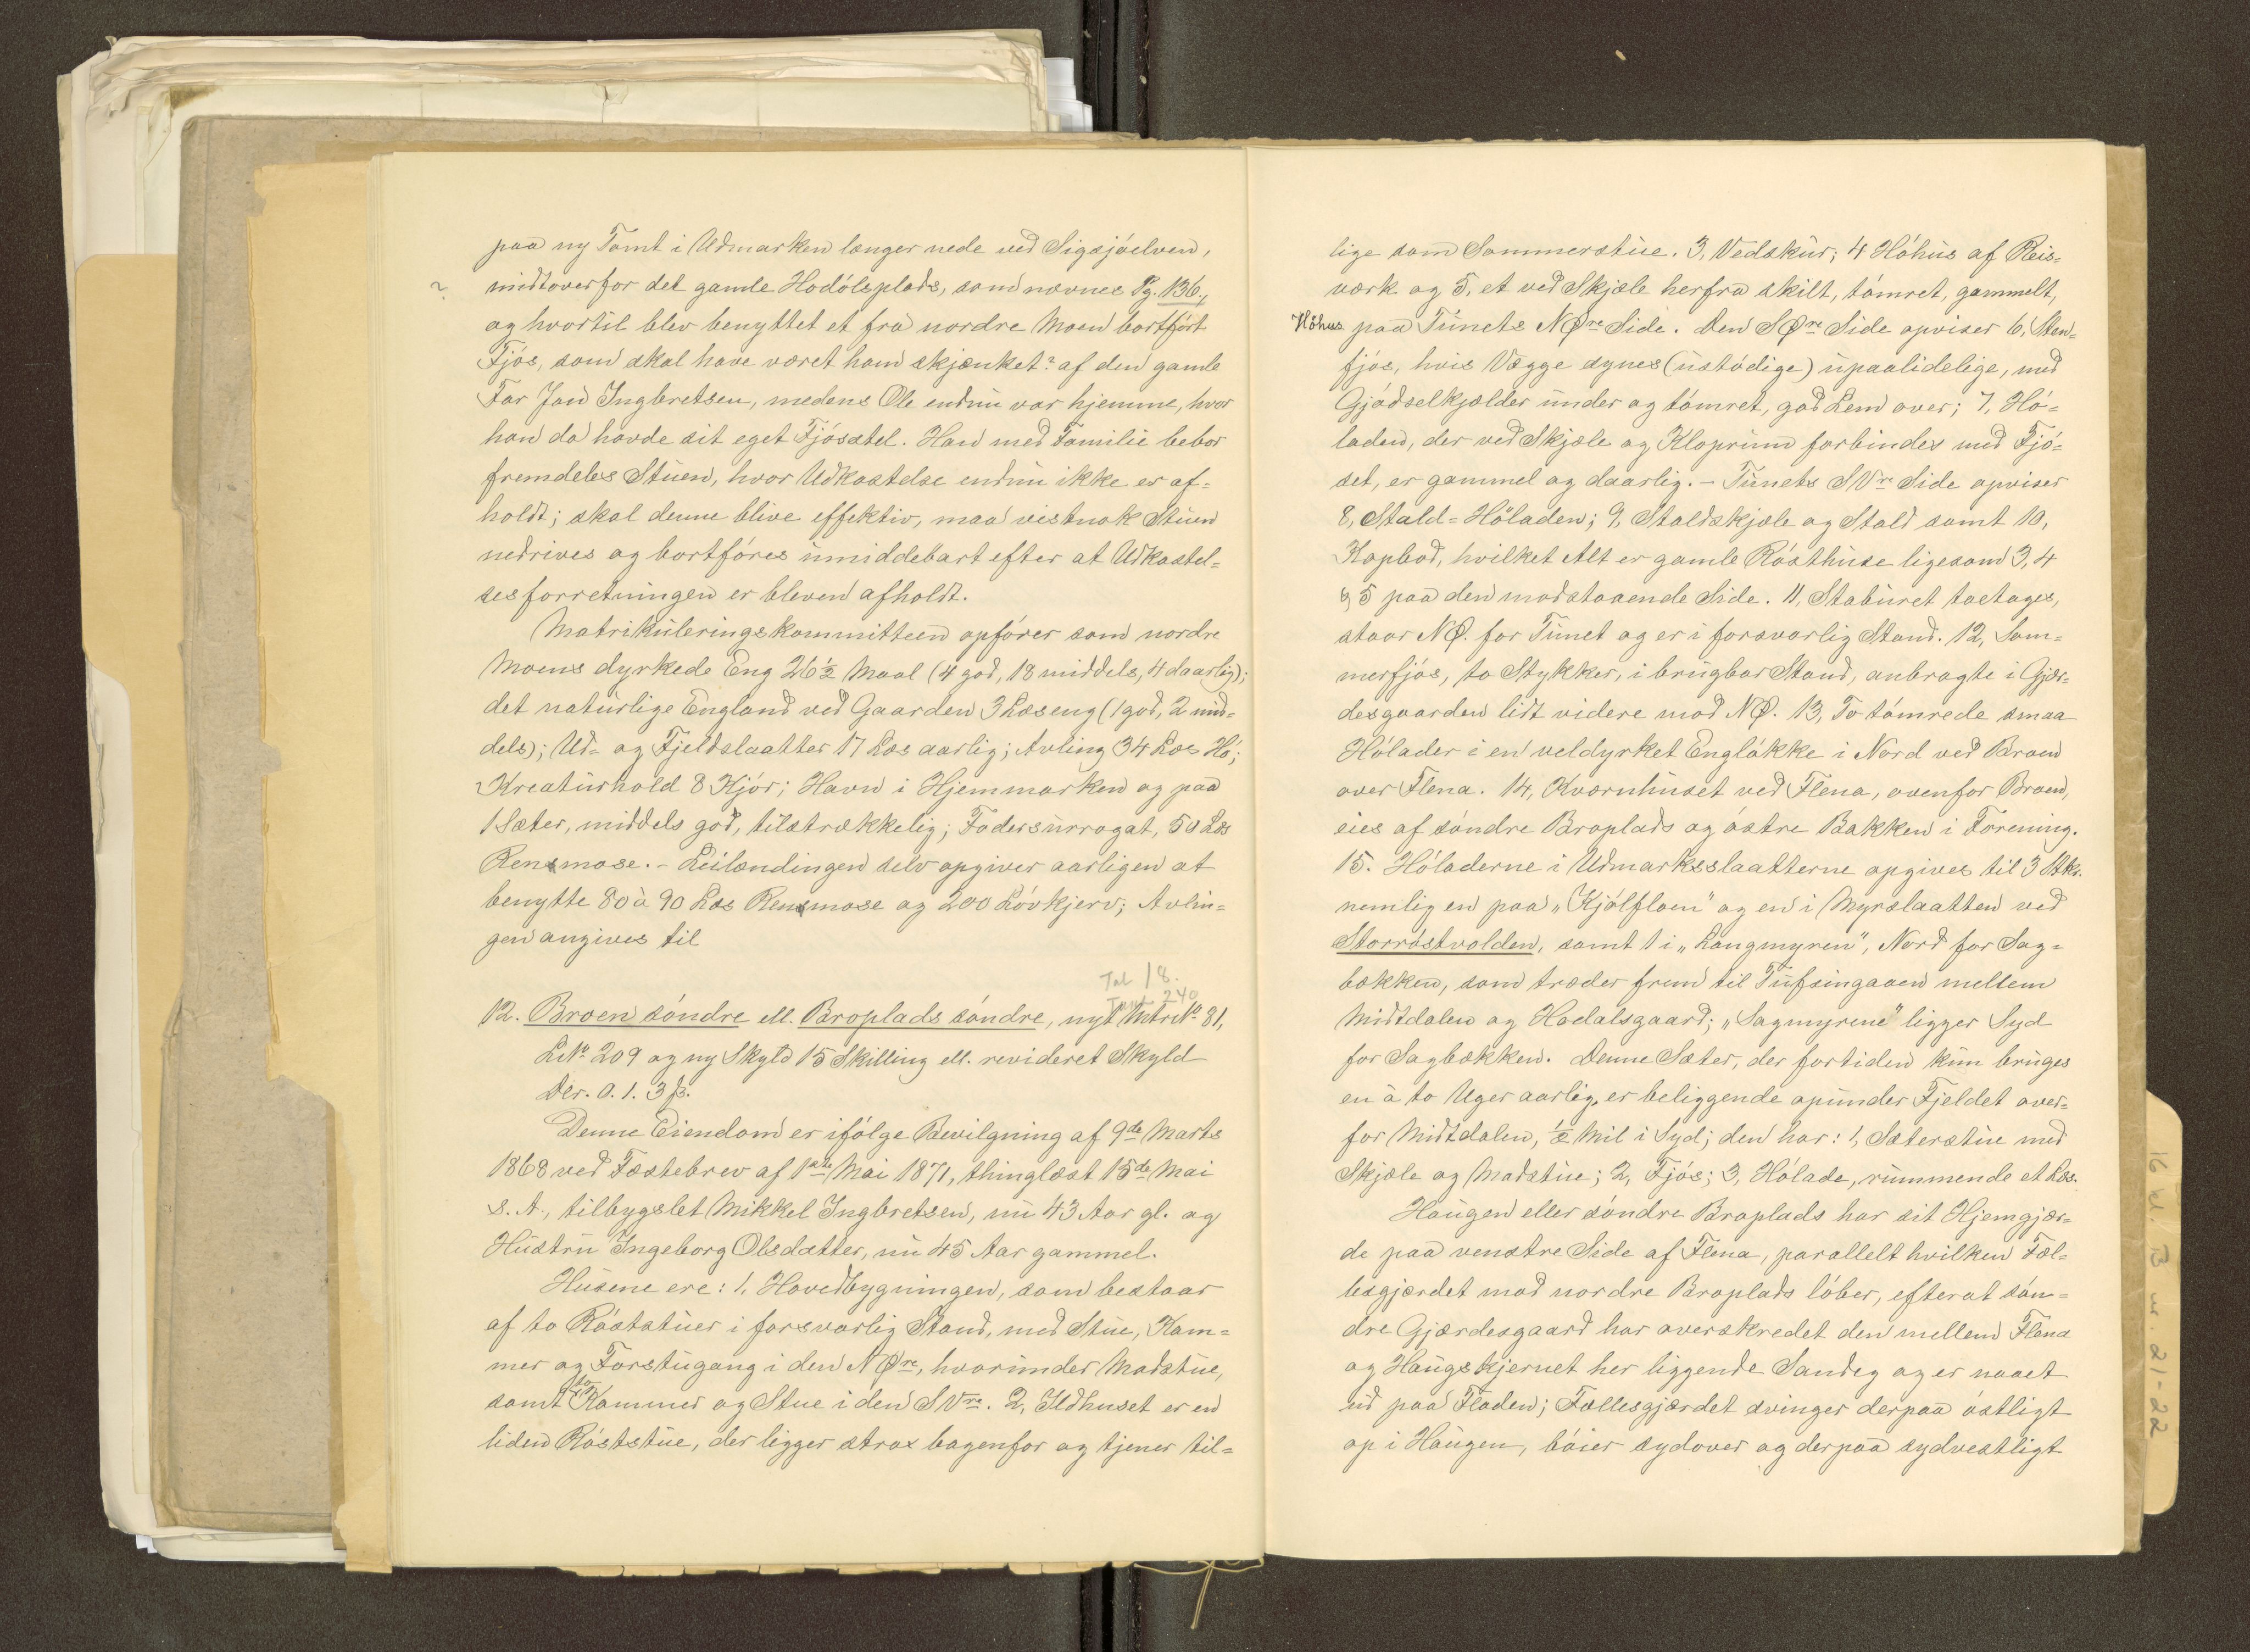 paa ny Tomt i Udmarken længer nede ved Sigsjóelven,
? midtoverfor det gamle Hodólsplads, som nævnes Pg. 136.,
og hvortil blev benyttet et fra nordre Moen bortfórt
Fjós, som skal have været ham skjænket? af den gamle
Far Jon Ingbretsen, medens Ole endnu var hjemme, hvor
han da havde sit eget Fjósstel. Han med Familie bebor
fremdeles Stuen, hvor Udkastelse endnu ikke er af=
holdt; skal denne blive effektiv, maa vistnok Stuen
nedrives og bortfóres umiddelbart efter at Udkastel=
sesforretningen er bleven afholdt.
Matrikuleringskommitteen opfórer som nordre
Moens dyrkede Eng 26 1/2 Maal (4 god, 18 middels, 4 daarlig);
det naturlige England ved Gaarden 3 Læseng (1 god, 2 mid=
dels); Ud= og Fjeldslaatter 17 Læs aarlig; Avling 34 Læs Hó;
Kreaturhold 8 Kjór; Havn i Hjemmarken og paa
1 Sæter, middels god, tilstrækkelig; Fodersurrogat, 50 Læs
Rensmose. - Leilændingen selv opgiver aarligen at
benytte 80 à 90 Læs Rensmose og 200 Lóvkjerv; Avlin=
gen angives til
Tal 18.
240
12. Broen sóndre ell. Broplads sóndre, nyt Mtr No 81,
LNo. 209 og ny Skyld 15 Skilling ell. revideret Skyld
Dlr. 0. 1. 3 ß.
Denne Eiendom er ifólge Bevilgning af 9de Marts
1868 ved Fæstebrev af 1ste Mai 1871, thinglæst 15de Mai
s. A., tilbygslet Mikkel Ingbretsen, nu 43 Aar gl. og
Hustru Ingeborg Olsdatter, nu 45 Aar gammel.
Husene ere: 1, Hovedbygningen, som bestaar
af to Róststuer i forsvarlig Stand, med Stue, Kam=
mer og Forstugang i den NØre, hvorunder Madstue,
samt to Kammer og Stue i den SVre. 2, Ildhuset er en
liden Róststue, der ligger strax bagenfor og tjener til=
lige som Sommerstue. 3, Vedskur; 4 Hóhus af Reis=
værk og 5, et ved Skjæle herfra skilt, tómret, gammelt,
Höhus paa Tunets NØre Side. Den SØre Side opviser 6, Sten=
fjós, hvis Vægge synes (ustódige) upaalidelige, med
Gjódselkjælder under og tómret, god Lem over; 7, Hó=
laden, der ved Skjæle og Kloprum forbindes med Fjó=
set, er gammel og daarlig. - Tunets SVre Side opviser
8, Stald=Höladen; 9, Staldskjæle og Stald samt 10,
Kopbod, hvilket Alt er gamle Rósthuse ligesom 3, 4
& 5 paa den modstaaende Side. 11, Staburet toetages,
staar NØ. for Tunet og er i forsvarlig Stand. 12, Som=
merfjós, to Stykker, i brugbar Stand, anbragte i Gjær=
desgaarden lidt videre mod NØ. 13, To tómrede smaa
Hólader i en veldyrket Englókke i Nord ved Broen
over Flena. 14, Kværnhuset ved Flena, ovenfor Broen,
eies af sóndre Broplads og óstre Bakken i Forening.
15. Hóladerne i Udmarksslaatterne opgives til 3 Stkr.
nemlig en paa "Kjólfloen" og en i Myrslaatten ved
Storróstvolden, samt 1 i "Langmyren", Nord for Sag=
bækken, som træder frem til Tufsingaaen mellem
Midtdalen og Hodalsgaard; "Sagmyrene" ligger Syd
for Sagbækken. Denne Sæter, der fortiden kun bruges
en à to Uger aarlig, er beliggende opunder Fjeldet over=
for Midtdalen, 1/2 Mil i Syd; den har: 1, Sæterstue med
Skjæle og Madstue; 2, Fjós; 3, Hólade, rummende et Læs.
Haugen eller sóndre Broplads har sit Hjemgjær=
de paa venstre Side af Flena, parallelt hvilken Fæl=
lesgjærdet mod nordre Broplads lóber, efterat són=
dre Gjærdesgaard har overskredet den mellem Flena
og Haugskjernet her liggende Sandeg og er naaet
ud paa Floden; Fællesgjærdet svinger derpaa óstligt
op i Haugen, bóier sydover og derpaa sydvestligt